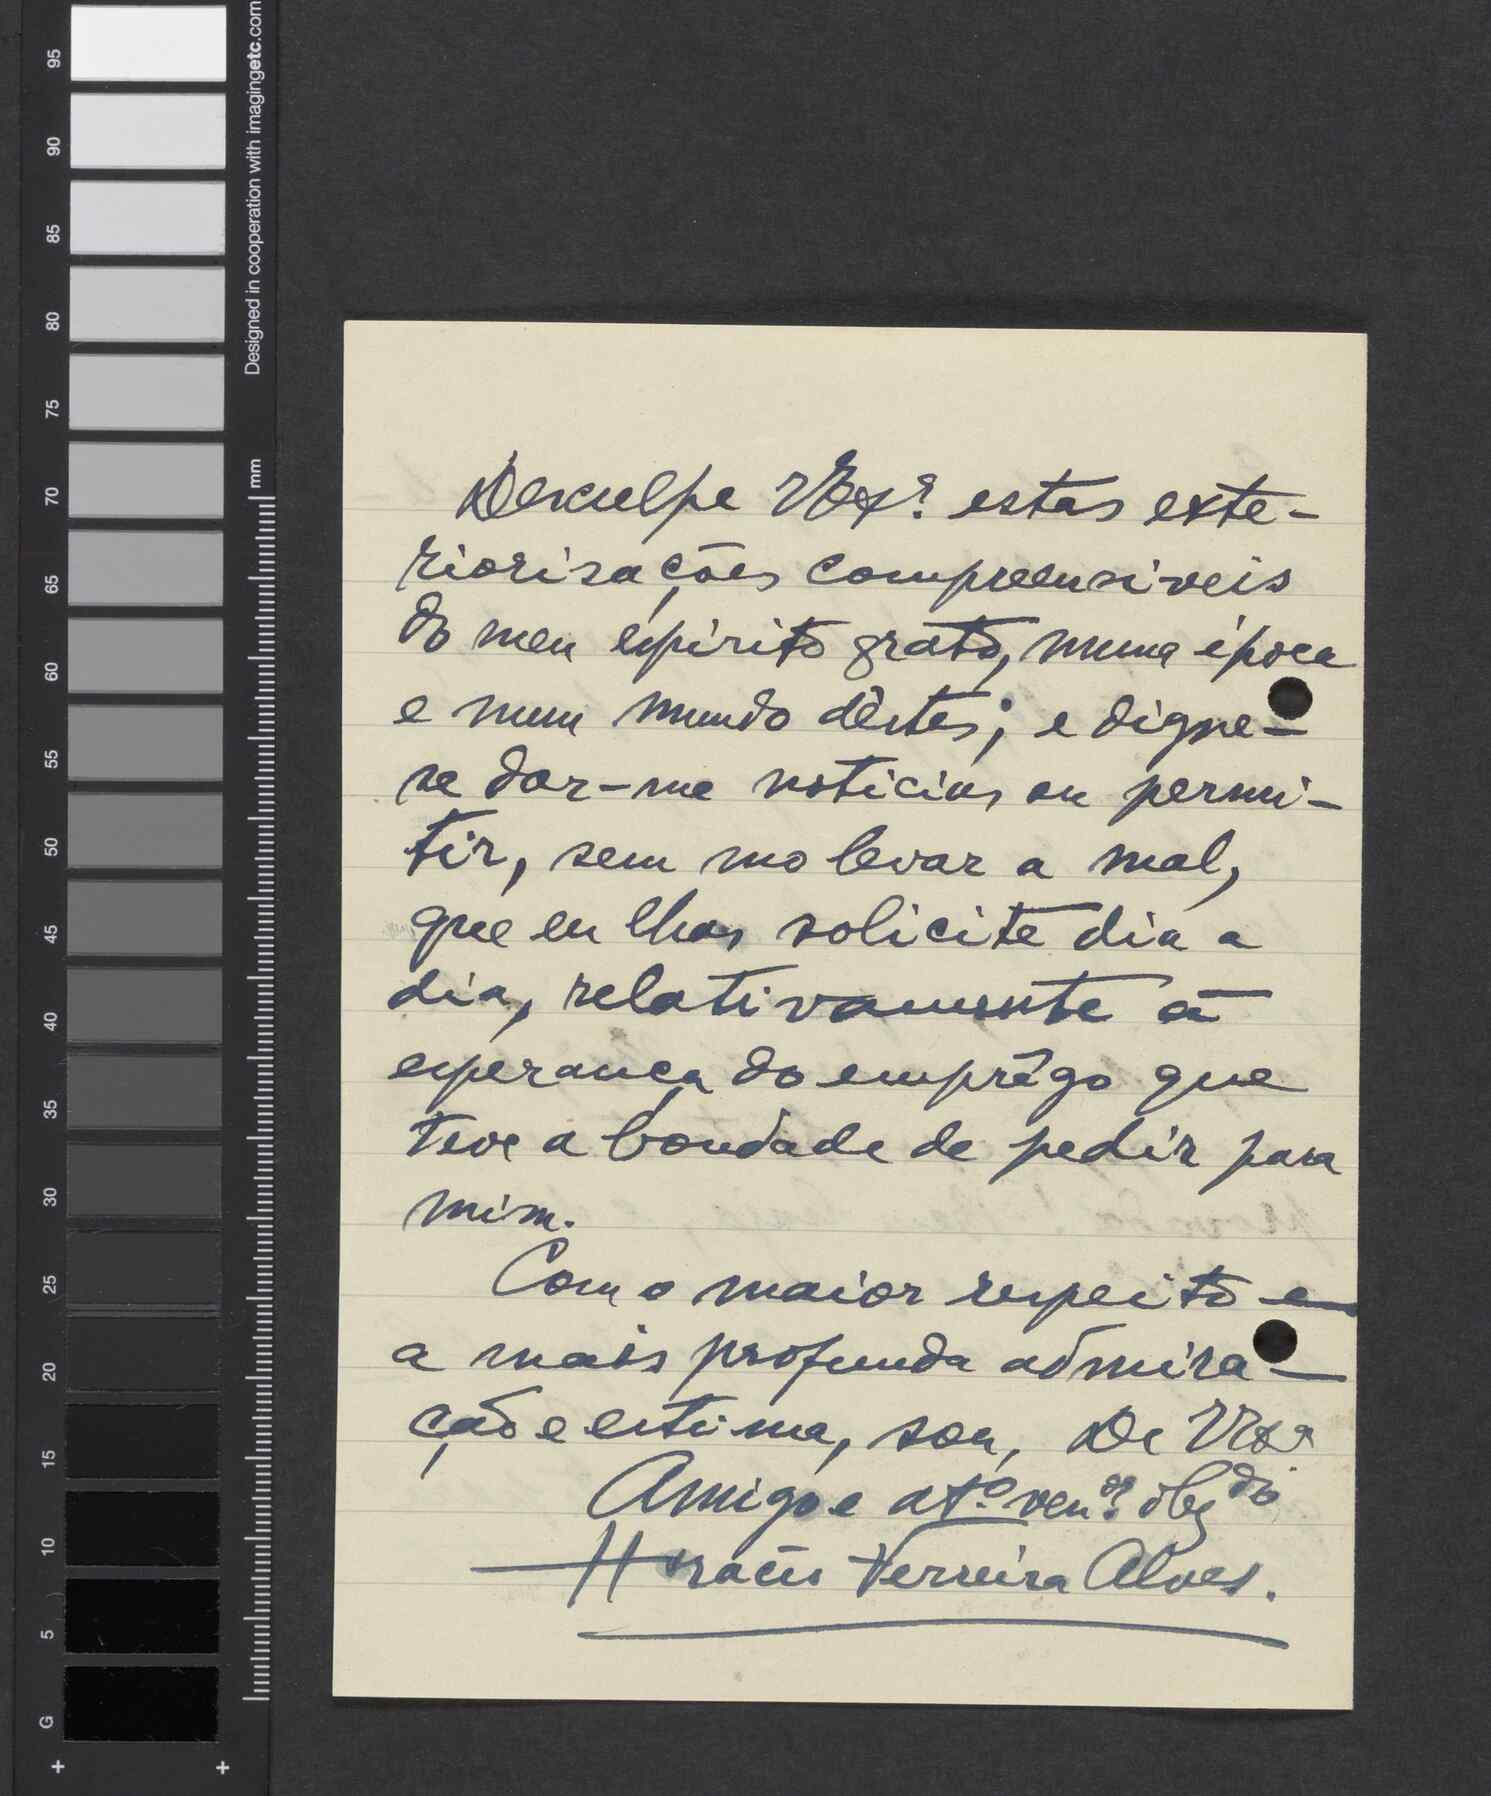 95
90
85
80
75
70
65
60
55
50
45
40
35
30
25
20
15
10
5
G
Designed in cooperation with imagingetc.com
mm
Desculpe VExª. estas exte-
riorisações compreensiveis
do meu espirito grato, numa época
e num mundo dêstes; e digne-
se dar-me noticias ou permi-
tir, sem mo levar a mal,
que eu lhas solicite dia a
dia, relativamente á
esperança do emprêgo que
teve a bondade de pedir para
mim.
Com o maior respeito e
a mais profunda admira-
ção e estima, sou, De VExª
Amigo e atº. venºr. obgdo
Horacio Ferreira Alves.